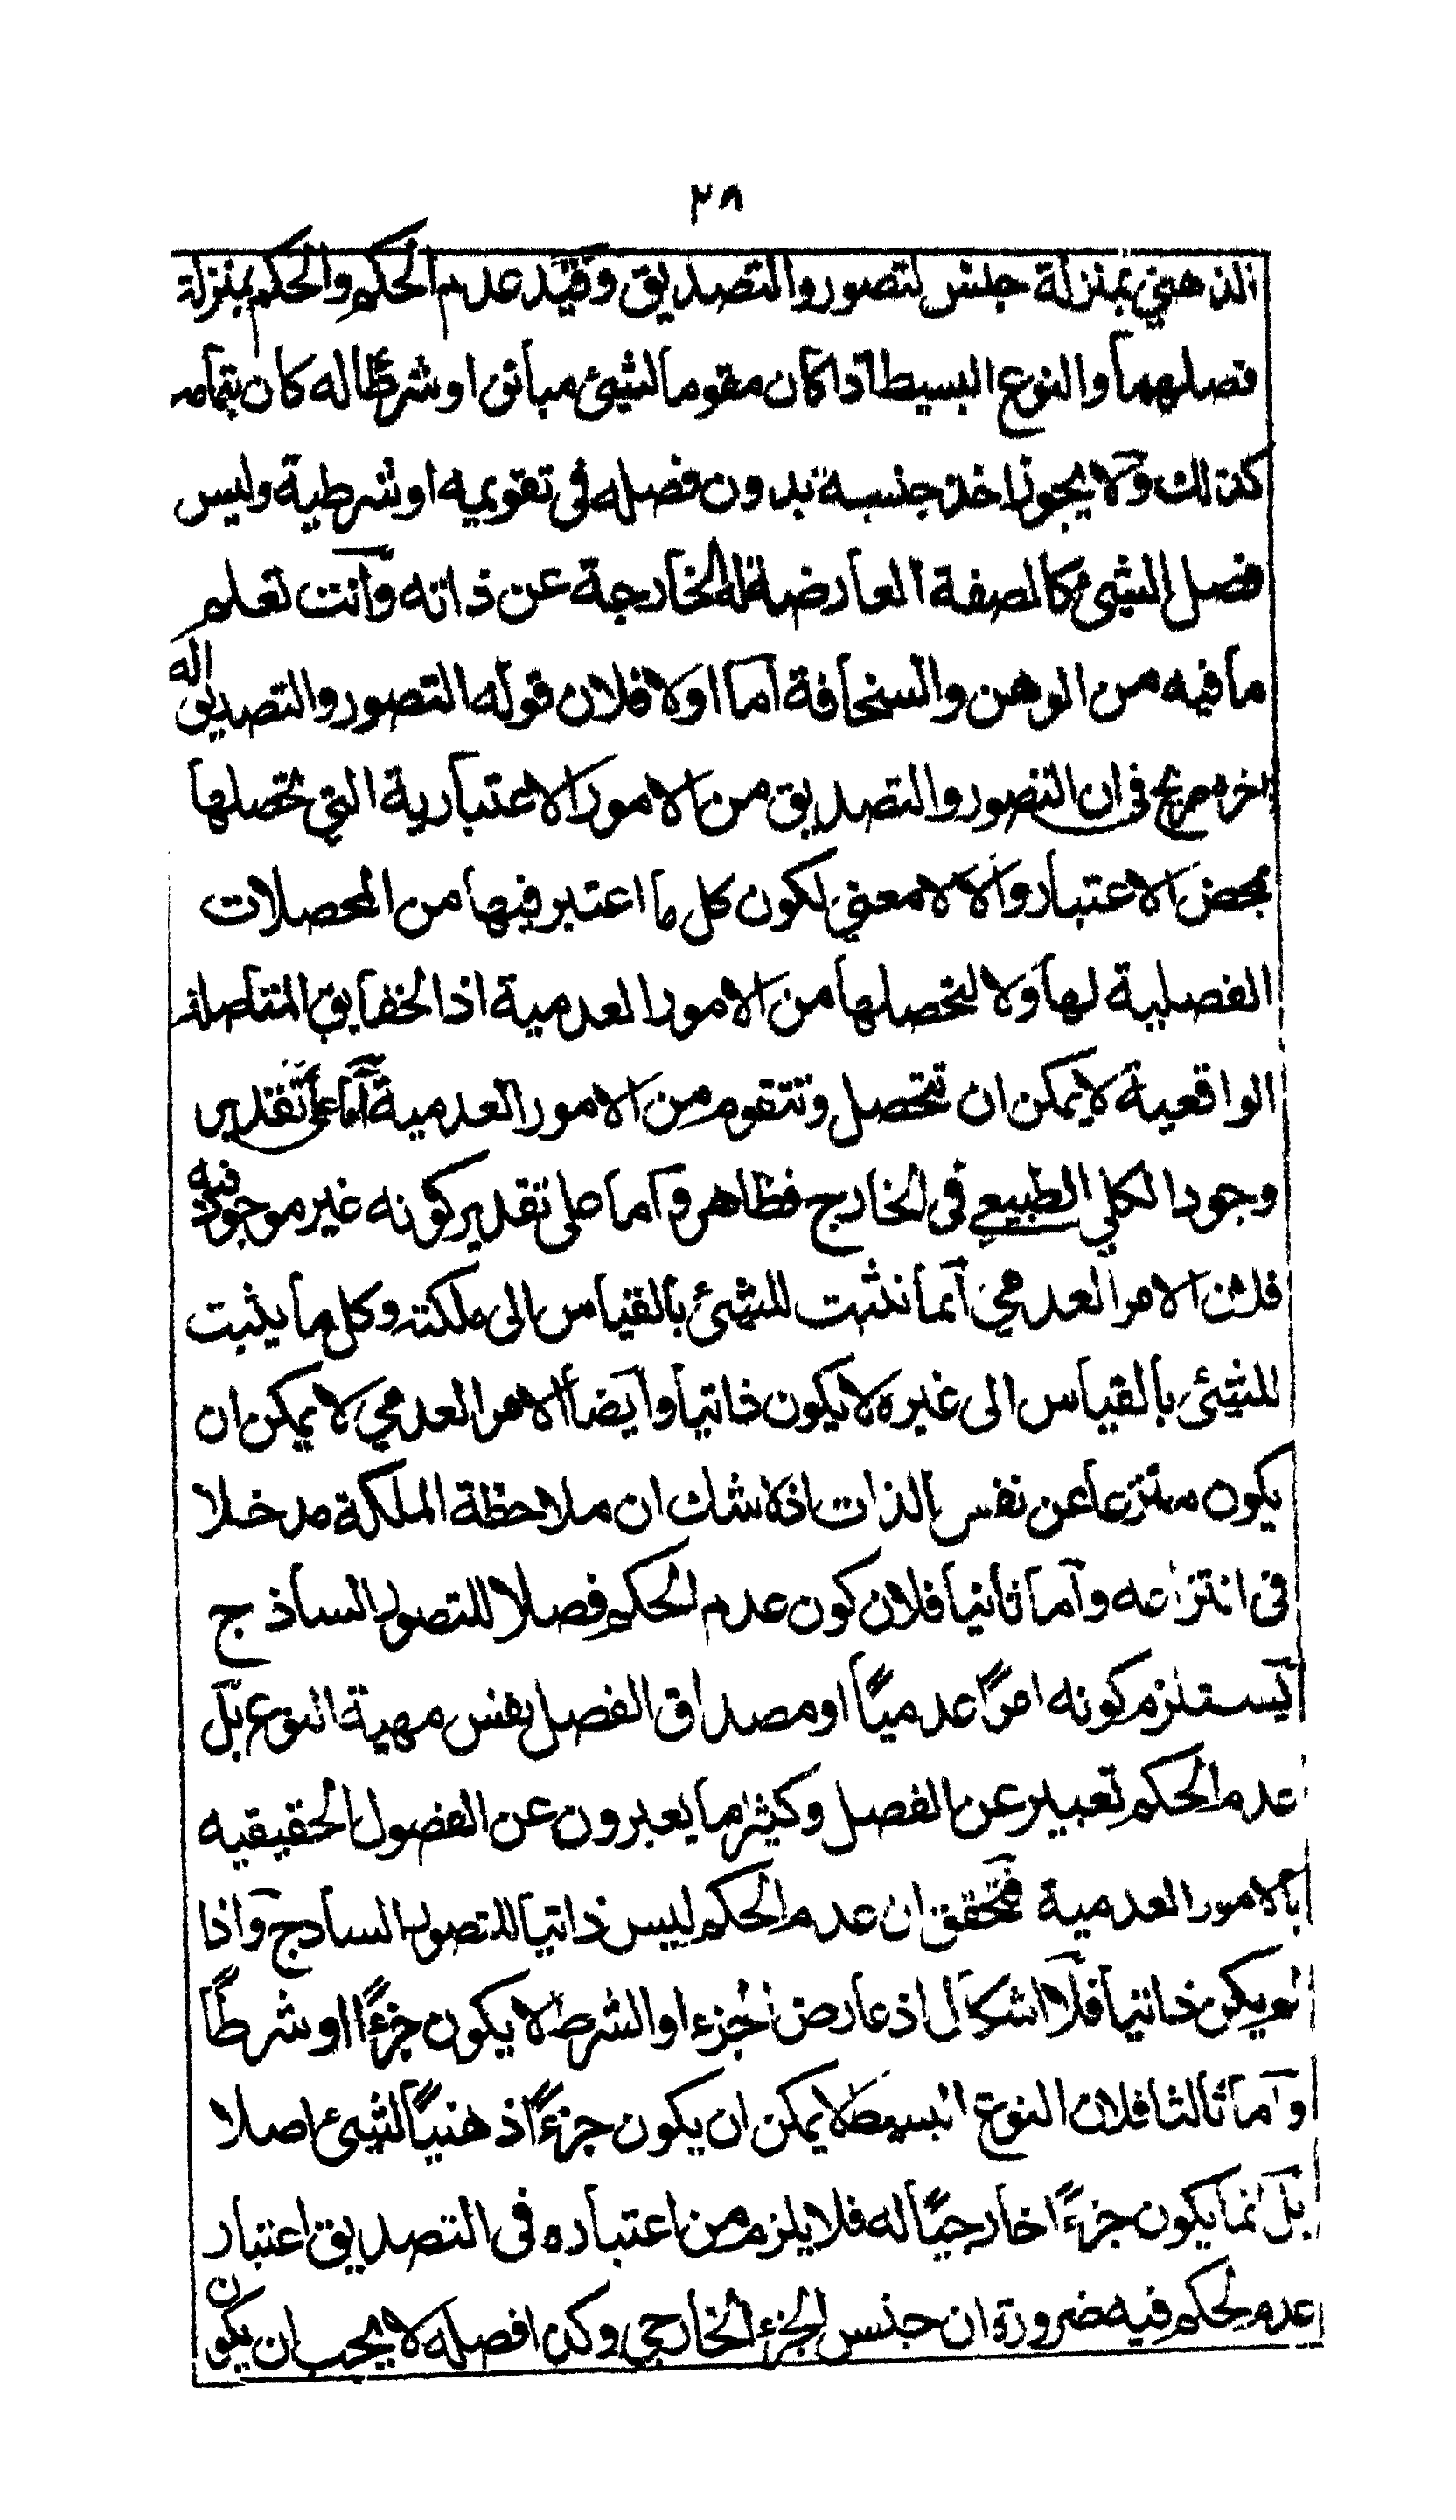 ٢٨
الذهني بمنزلة جنس لتصور والتصديق وقيد عدم الحكم والحكم بمنزلة
فصلهما والنوع البسيط اذا كان مقوما لشيئ مبائن او شرطا له كان بتمامه
كذلك ولا يجوز اخذ جنسه بدون فصله في تقويمه او شرطية وليس
فصل الشيئ كالصفة العارضة له الخارجة عن ذاته وانت تعلم
ما فيه من الوهن والسخافة اما اولا فلان قوله التصور والتصديق اله
اخره صريح في ان التصور والتصديق من الامور الاعتبارية التي تحصلها
بمحض الاعتبار والا لا معني لكون كل ما اعتبر فيها من المحصلات
الفصلية لها ولا لتحصلها من الامور العدمية اذ الحقايق المتاصلة
الواقعية لا يمكن ان تتحصل وتتقوم من الامور العدمية اما على تقدير
وجود الكلي الطبيعي في الخارج فظاهر واما على تقدير كونه غير موجود فيه
فلان الامر العدمي انما نثبت للشيئ بالقياس الى ملكته وكل ما يثبت
للشيئ بالقياس الى غيره لا يكون ذاتيا وايضا الامر العدمي لا يمكن ان
يكون منتزعا عن نفس الذات اذ لا شك ان ملاحظة الملكة مدخلا
في انتزاعه واما ثانيا فلان كون عدم الحكم فصلا للتصور الساذج
يستلزم كونه امرًا عدميًا او مصداق الفصل نفس مهية النوع بل
عدم الحكم تعبير عن الفصل وكثيرا ما يعبرون عن الفصول الحقيقيه
بالامور العدمية فتحقق ان عدم الحكم ليس ذاتيا للتصور الساذج واذا
لم يكن ذاتيا فلا اشكال اذ عارض الجزء او الشرط لا يكون جزءًا او شرطًا
واما ثالثا فلان النوع البسيط لا يمكن ان يكون جزءًا ذهنيًا لشيئ اصلا
بل انما يكون جزءًا خارجيًا له فلا يلزم من اعتباره في التصديق اعتبار
عدم الحكم فيه ضرورة ان جنس الجزء الخارجي وكذا فصله لا يجب ان يكون